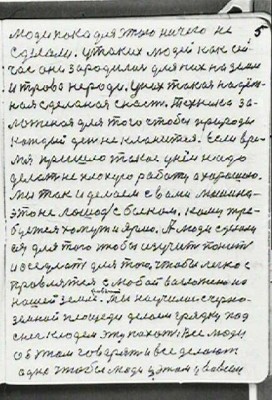 5
люди пока для этого ничего не
сделали. У таких людей как сей
час они зародились для них на земли
и трава не роди. У них такая надём-
ная сделаная снасть. Техника за-
ложеная для того чтобы природы
каждый день не кланится. Если вре-
мя пришло такое у ней надо
делать не плохую работу а хорошаю.
Мы так и делаем с вами машина
это не лошадь с быком. Кому тре-
буется хомут и ярмо. А люди сделали
ея для того чтобы изучить понять
и все для того, чтобы легко с
правлятся с любой
нашей земле. Мы научились с чорно-
земной площеди делаем грядку под
снег кладем эту пахать. Все люди
об этом говорят и все делают
одно чтобы люди в этом